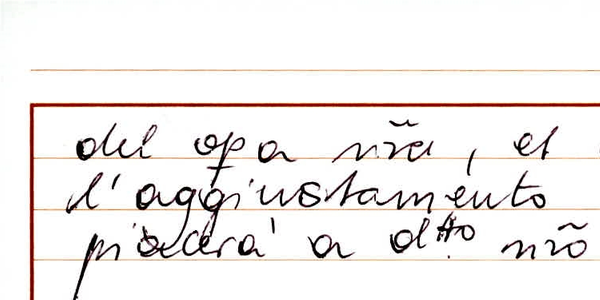 del opa nr̃a, et
l'aggiustamento
piacerà a d.tto nr̃o